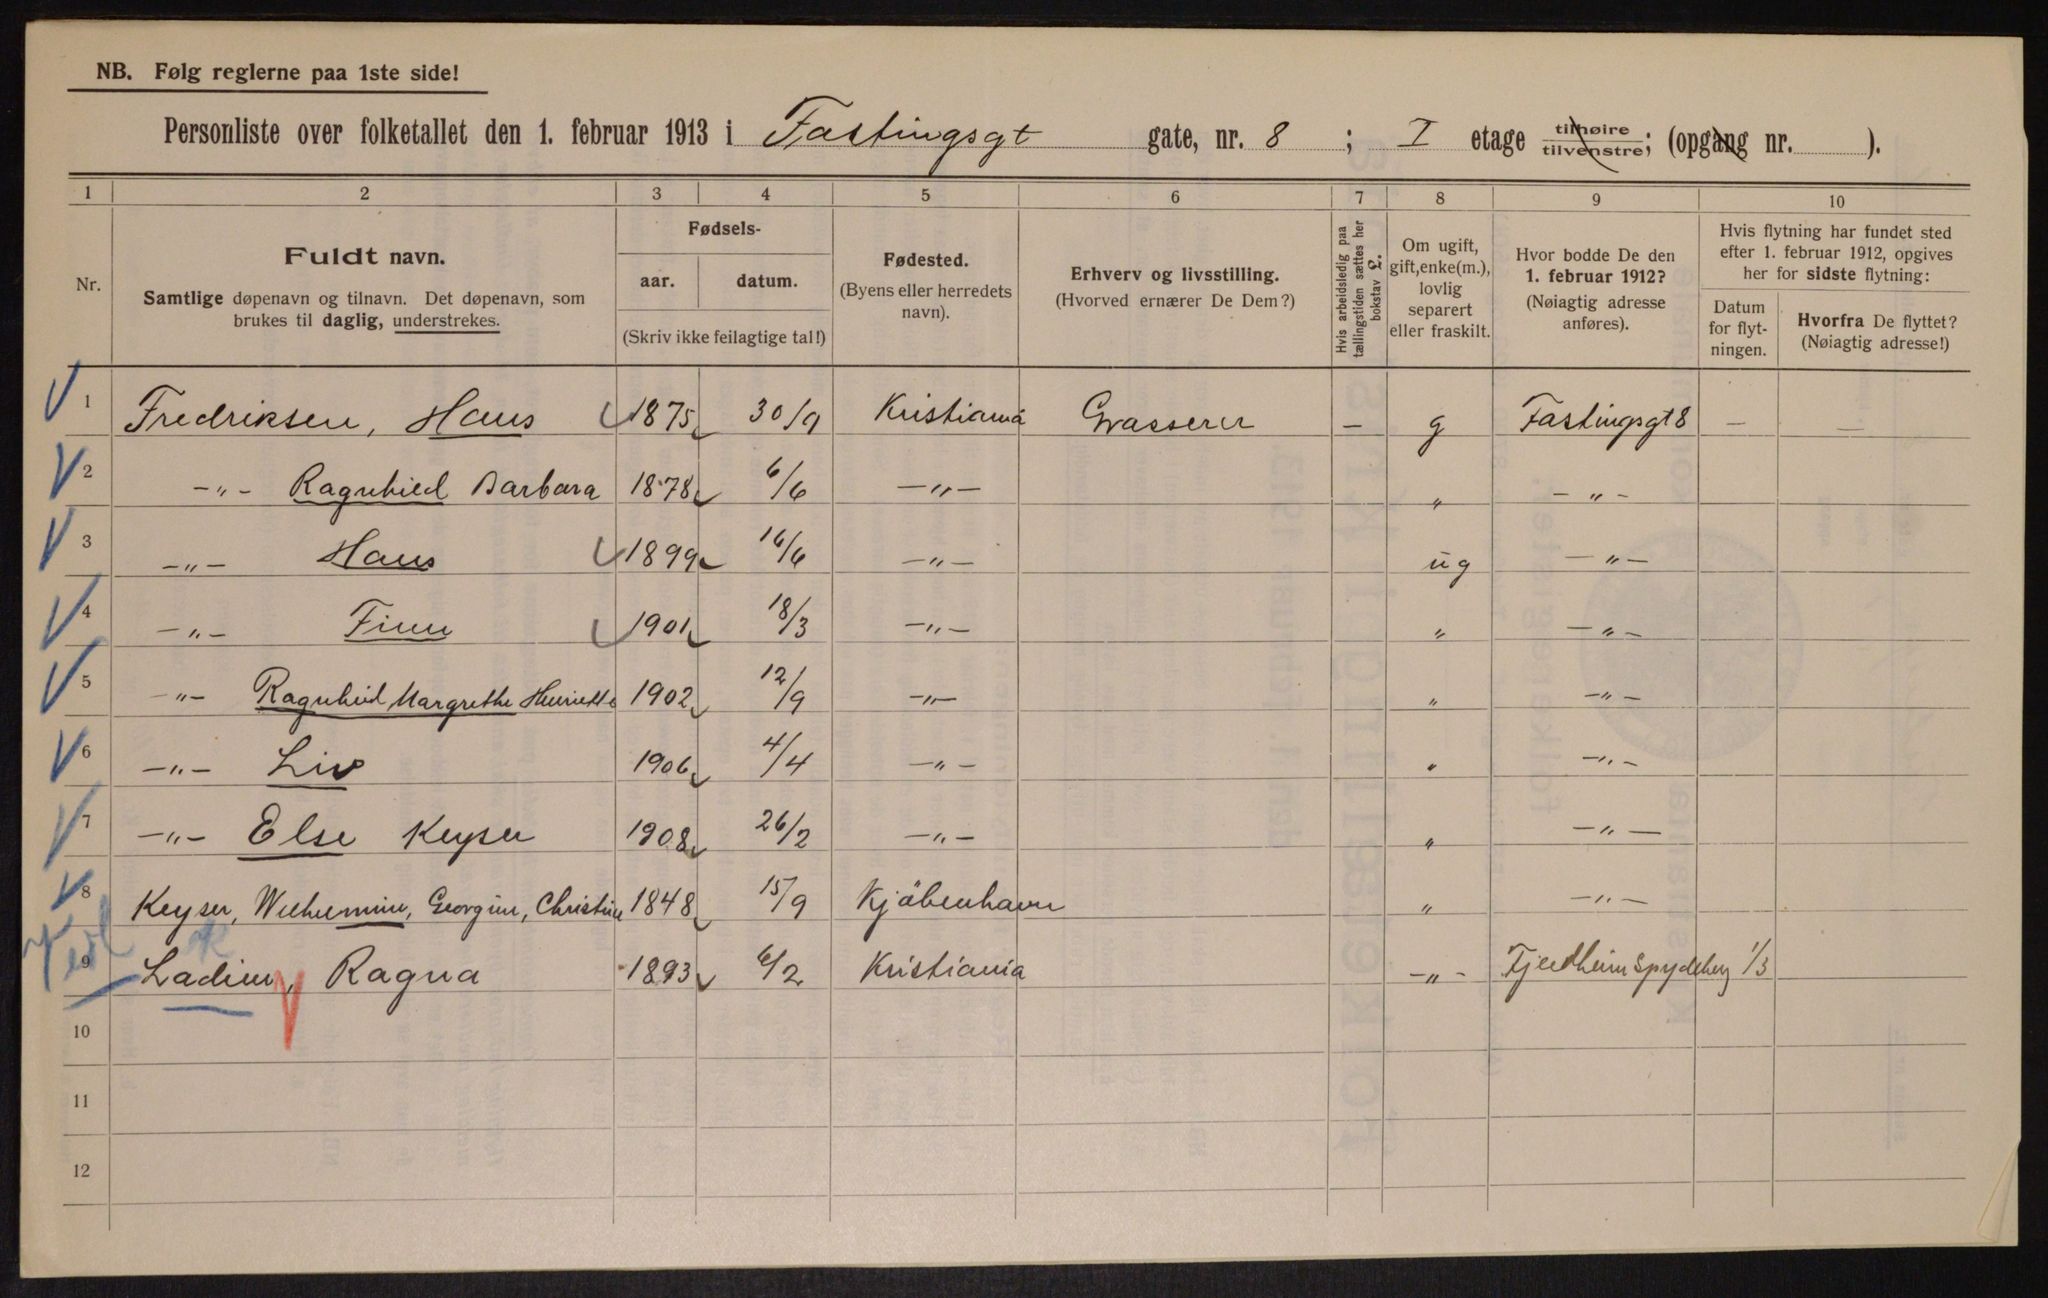 NB. Følg reglerne paa 1ste side!
Personliste over folketallet den 1. februar 1913 i Fastingsgt gate, nr. 8 ; I etage tilhøire tilvenstre; (opgang nr. ).
1 2 3 4 5 6 7 8 9 10
Nr.
Fuldt navn.
Samtlige døpenavn og tilnavn. Det døpenavn, som
brukes til daglig, understrekes.
Fødsels-
aar. datum.
(Skriv ikke feilagtige tal!)
Fødested.
(Byens eller herredets
navn).
Erhverv og livsstilling.
(Hvorved ernærer De Dem?)
Hvis arbeidsledig paa
tællingstiden sættes her
bokstav L.
Om ugift,
gift, enke(m.),
lovlig
separert
eller fraskilt.
Hvor bodde De den
1. februar 1912?
(Nøiagtig adresse
anføres).
Hvis flytning har fundet sted
efter 1. februar 1912, opgives
her for sidste flytning:
Datum
for flyt-
ningen.
Hvorfra De flyttet?
(Nøiagtig adresse!)
1 Fredriksen, Hans 1875 30/9 Kristiania Grasserer — g Fastingsgt 8 — —
2 —"— Ragnhild Barbara 1878 6/6 —"— " —"—
3 —"— Hans 1899 16/6 —"— ug —"—
4 —"— Finn 1901 18/3 —"— " —"—
5 —"— Ragnhild, Margrethe Henriette 1902 12/9 —"— " —"—
6 —"— Liv 1906 4/4 —"— " —"—
7 —"— Else Keyser 1908 26/2 —"— " —"—
8 Keyser, Wilhelmine, Georgine, Christine 1848 15/9 Kjöbenhavn " —"—
9 Ladim, Ragna 1893 6/2 Kristiania —"— Fjeldheim Spydeberg 1/3
10
11
12